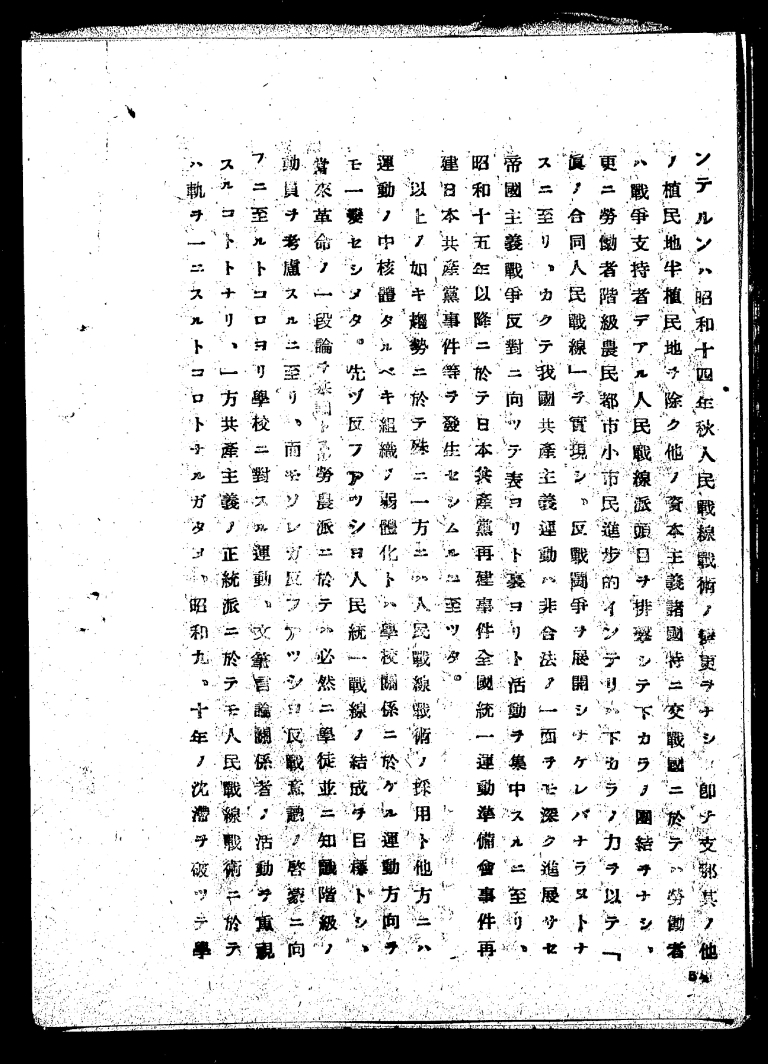 ンテルンハ昭和十四年秋人民戰線戰術ノ變更ヲナシ、卽チ支那其ノ他
ノ植民地半植民地ヲ除ク他ノ資本主義諸國特ニ交戰國ニ於テハ勞働者
ハ戰爭支持者デアル人民戰線派頭目ヲ排撃シテ下カラノ團結ヲナシ、
更ニ勞働者階級農民都市小市民進步的インテリハ下カラノ力ヲ以テ「
眞ノ合同人民戰線」ヲ實現シ、反戰鬪爭ヲ展開シナケレバナラヌトナ
スニ至リ、カクテ我國共產主義運動ハ非合法ノ一面ヲモ深ク進展サセ
帝國主義戰爭反對ニ向ツテ表ヨリト裏ヨリト活動ヲ集中スルニ至リ、
昭和十五年以降ニ於テ日本共產黨再建事件全國統一運動準備會事件再
建日本共產黨事件等ヲ發生セシムルニ至ツタ。
以上ノ如キ趨勢ニ於テ殊ニ一方ニハ人民戰線戰術ノ採用ト他方ニハ
運動ノ中核體タルベキ組織ノ弱體化トハ學校關係ニ於ケル運動方向ヲ
モ一變セシメタ。先ヅ反フアツシヨ人民統一戰線ノ結成ヲ目標トシ、
當來革命ノ一段論ヲ勞農派ニ於テハ必然ニ學徒並ニ知識階級ノ
動員ヲ考慮スルニ至リ、而モソレガ反フアツシヨ反戰意識ノ啓蒙ニ向
フニ至ルトコロヨリ學校ニ對スル運動、文筆言論關係者ノ活動ヲ重視
スルコトトナリ、一方共產主義ノ正統派ニ於テモ人民戰線戰術ニ於テ
ハ軌ヲ一ニスルトコロトナルガタメ、昭和九、十年ノ沈滯ヲ破ツテ學